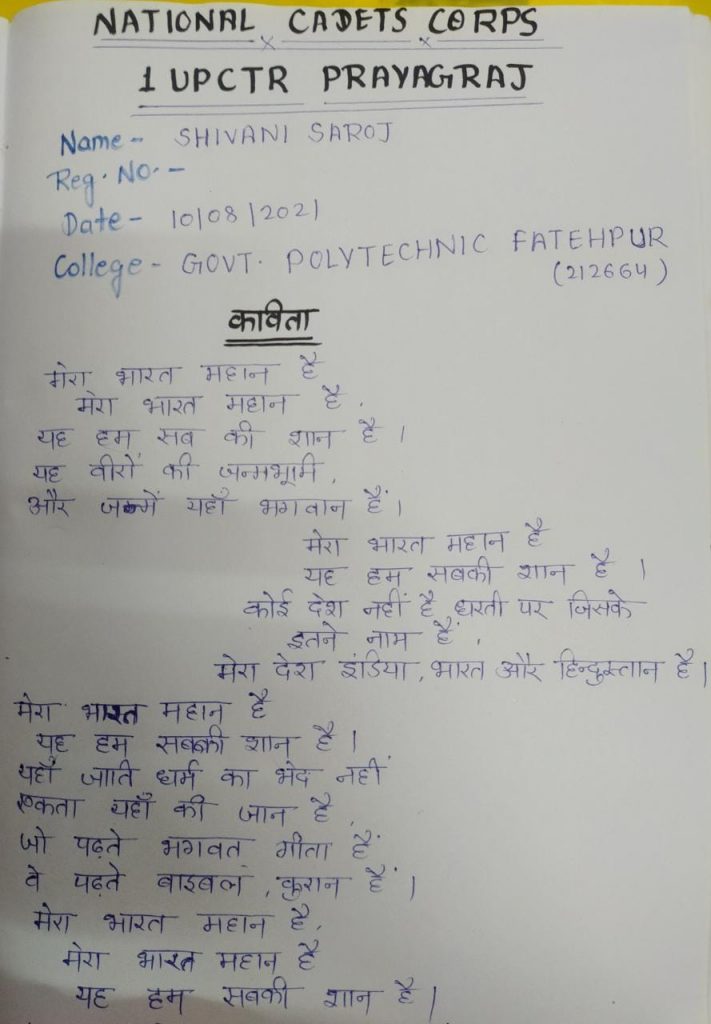 NATIONAL CADETS CORPS
1 UPCTR PRAYAGRAJ
Name - SHIVANI SAROJ
Reg. No. -
Date - 10/08/2021
College - GOVT. POLYTECHNIC FATEHPUR
(212664)
कविता
मेरा भारत महान है
मेरा भारत महान है,
यह हम सब की शान है।
यह वीरों की जन्मभूमी,
और जन्में यहाँ भगवान हैं।
मेरा भारत महान है
यह हम सबकी शान है।
कोई देश नहीं है धरती पर जिसके
इतने नाम हैं,
मेरा देश इंडिया, भारत और हिन्दुस्तान है।
मेरा भारत महान है
यह हम सबकी शान है।
यहाँ जाति धर्म का भेद नहीं
एकता यहाँ की जान है,
जो पढ़ते भगवत गीता हैं
वे पढ़ते बाइबल, कुरान हैं।
मेरा भारत महान है,
मेरा भारत महान है
यह हम सबकी शान है।